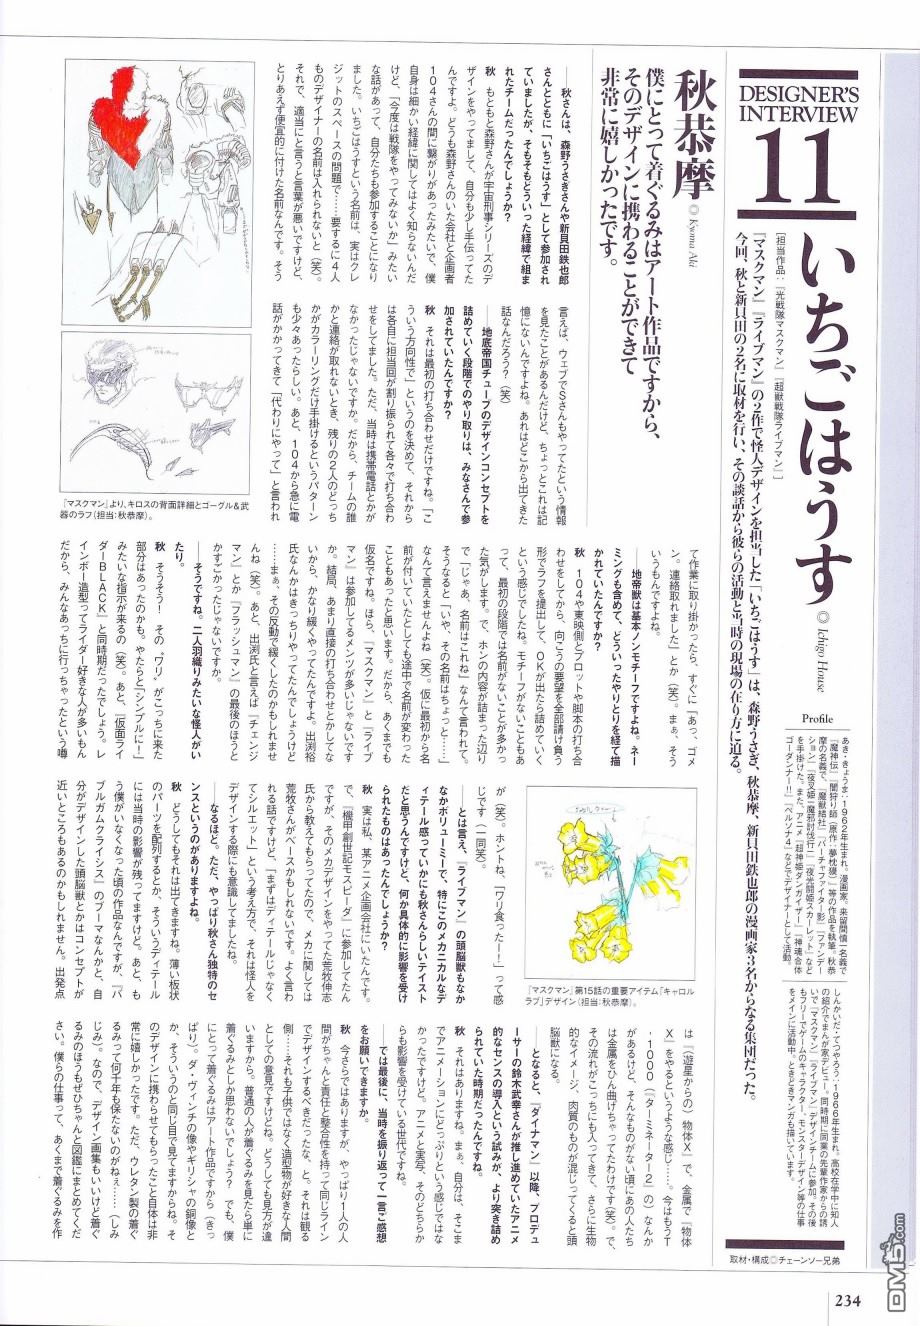 DESIGNER'S
INTERVIEW
11
いちごはうす ◎ Ichigo House
[担当作品:『光戦隊マスクマン』『超獣戦隊ライブマン』]
『マスクマン』『ライブマン』の2作で怪人デザインを担当した「いちごはうす」は、森野うさぎ、秋恭摩、新貝田鉄也郎の漫画家3名からなる集団だった。
今回、秋と新貝田の2名に取材を行い、その談話から彼らの活動と当時の現場の在り方に迫る。
Profile
あき・きょうま・1962年生まれ。漫画家。来留間慎一名義で
『魔神伝』『闇狩り師(原作:夢枕獏)』等の作品を執筆。秋恭
摩の名義で、『魔獣結社』『バーチャファイター影』『ファンデー
ション』『夜叉姫─魔邪討伐行─』『夜光闘姫スカーレット』など
を手掛けた。また、アニメ『超神姫ダンガイザー3』『神魂合体
ゴーダンナー!!』『ペルソナ4』などでデザイナーとして活動。
しんかいだ・てつやろう・1966年生まれ。高校在学中に知人
の紹介でまんが家デビュー。同時期に同業の先輩作家からの誘
いで『マスクマン』『ライブマン』デザインチームに参加。その後
もフリーでゲームのキャラクター、モンスターデザイン等の仕事
をメインに活動中。ときどきマンガも描いています。
取材・構成◎チェーンソー兄弟
秋恭摩 ◎ Kyouma Aki
僕にとって着ぐるみはアート作品ですから、
そのデザインに携わることができて
非常に嬉しかったです。
――秋さんは、森野うさぎさんや新貝田鉄也郎
さんとともに「いちごはうす」として参加され
ていましたが、そもそもどういった経緯で組ま
れたチームだったんでしょうか?
秋 もともと森野さんが宇宙刑事シリーズのデ
ザインをやってまして、自分も少し手伝ってた
んですよ。どうも森野さんのいた会社と企画者
104さんの間に繋がりがあったみたいで、僕
自身は細かい経緯に関してはよく知らないんだ
けど、「今度は戦隊をやってみないか」みたい
な話があって、自分たちも参加することになり
ました。いちごはうすという名前は、実はクレ
ジットのスペースの問題で……要するに4人
ものデザイナーの名前は入れられないと(笑)。
それで、適当にと言うと言葉が悪いですけど、
とりあえず便宜的に付けた名前なんです。そう
言えば、ウェブでSさんもやってたという情報
を見たことがあるんだけど、ちょっとこれは記
憶にないんですよね。あれはどこから出てきた
話なんだろう?(笑)
――地底帝国チューブのデザインコンセプトを
詰めていく段階でのやり取りは、みなさんで参
加されていたんですか?
秋 それは最初の打ち合わせだけですね。「こ
ういう方向性で」というのを決めて、それから
は各自に担当回が割り振られて各々で打ち合わ
せをしてました。ただ、当時は携帯電話とかが
なかったじゃないですか。だから、チームの誰
かと連絡が取れないとき、残りの2人のどっち
かがカラーリングだけ手掛けるというパターン
も少々あったらしい。あと、104から急に電
話がかかってきて「代わりにやって」と言われ
て作業に取り掛かったら、すぐに「あっ、ゴメ
ン。連絡取れました」とか(笑)。まぁ、そう
いうもんですよね。
――地帝獣は基本ノンモチーフですよね。ネー
ミングも含めて、どういったやりとりを経て描
かれていたんですか?
秋 104や東映側とプロットや脚本の打ち合
わせをしてから、向こうの要望を全部請け負う
形でラフを提出して、OKが出たら詰めていく
という感じでしたね。モチーフがないこともあ
って、最初の段階では名前がないことが多かっ
た気がします。で、ホンの内容が詰まった辺り
で「じゃあ、名前はこれね」なんて言われて。
そうなると「いや、その名前はちょっと……」
なんて言えませんよね(笑)。仮に最初から名
前が付いていたとしても途中で名前が変わった
こともあったと思います。だから、あくまでも
仮名ですね。ほら、『マスクマン』と『ライブ
マン』は参加してるメンツが多いじゃないです
か。結局、あまり直接の打ち合わせとかしてな
いから、かなり緩くやってたんですよ。出渕裕
氏なんかはきっちりやってたんでしょうけど
……まぁ、その反動で緩くしたのかもしれませ
んね(笑)。あと、出渕氏と言えば『チェンジ
マン』とか『フラッシュマン』の最後のほうと
かすごかったじゃないですか。
――そうですね。二人羽織りみたいな怪人がい
たり。
秋 そうそう! その〝ワリ〟がこっちに来た
部分はあったのかも。やたらと「シンプルに!」
みたいな指示が来るの(笑)。あと、『仮面ライ
ダーBLACK』と同時期だったでしょう。レ
インボー造型ってライダー好きな人が多いもん
だから、みんなあっちに行っちゃったという噂
が(笑)。ホントね、「ワリ食ったー!」って感
じです(一同笑)。
――とは言え、『ライブマン』の頭脳獣もなか
なかボリューミーで、特にこのメカニカルなデ
ィテール感っていかにも秋さんらしいテイスト
だと思うんですけど、何か具体的に影響を受け
られたものはあったんでしょうか?
秋 実は私、某アニメ企画会社にいたんです。
で、『機甲創世記モスピーダ』に参加してたん
ですが、そのメカデザインをやってた荒牧伸志
氏から教えてもらってたので、メカに関しては
荒牧さんがベースかもしれないです。よく言わ
れる話ですけど、「まずはディテールじゃなく
てシルエット」という考え方で、それは怪人を
デザインする際にも意識してましたね。
――なるほど。ただ、やっぱり秋さん独特のセ
ンスというのがありますよね。
秋 どうしてもそれは出てきますね。薄い板状
のパーツを配列するとか、そういうディテール
には当時の影響が残ってますけど。あと、も
う僕がいなくなった頃の作品なんですが、『バ
ブルガムクライシス』のブーマなんかと、自
分がデザインした頭脳獣とかはコンセプトが
近いところもあるのかもしれません。出発点
は『(遊星からの)物体X』で、金属で『物体
X』をやるというような感じ……。今はもうT
-1000(『ターミネーター2』の)なんか
があるけど、そんなものがない頃にあの人たち
は金属をひん曲げちゃってたわけです(笑)。で、
その流れがこっちにも入ってきて、さらに生物
的なイメージ、肉質のものが混じってくると頭
脳獣になる。
――となると、『ダイナマン』以降、プロデュ
ーサーの鈴木武幸さんが推し進めていたアニメ
的なセンスの導入という試みが、より突き詰め
られていた時期だったんですね。
秋 それはありますね。まぁ、自分は、そこま
でアニメーションにどっぷりという感じではな
かったですけど。アニメと実写、そのどちらか
らも影響を受けている世代ですね。
――では最後に、当時を振り返って一言ご感想
をお願いできますか。
秋 今さらではありますが、やっぱり1人の人
間がちゃんと責任と整合性を持って同じライン
でデザインするべきだったな、と。それは観る
側……それも子供ではなく造型物が好きな人間
としての意見ですけどね。どうしても見方が違
いますから。普通の人が着ぐるみを見たら単に
着ぐるみとしか思わないでしょう? でも、僕
にとって着ぐるみはアート作品ですから(きっ
ぱり)。ダ・ヴィンチの像やギリシャの銅像と
か、そういうのと同じ目で見てますからね。そ
のデザインに携わらせてもらったこと自体は非
常に嬉しかったです。ただ、ウレタン製の着ぐ
るみって何千年も保たないのがねぇ……(しみ
じみ)。なので、デザイン画集もいいけど着ぐ
るみのほうもぜひちゃんと図鑑にまとめてくだ
さい。僕らの仕事って、あくまで着ぐるみを作
『マスクマン』より、キロスの背面詳細とゴーグル&武
器のラフ(担当:秋恭摩)。
『マスクマン』第15話の重要アイテム「キャロル
ラブ」デザイン(担当:秋恭摩)。
234
DM5.com